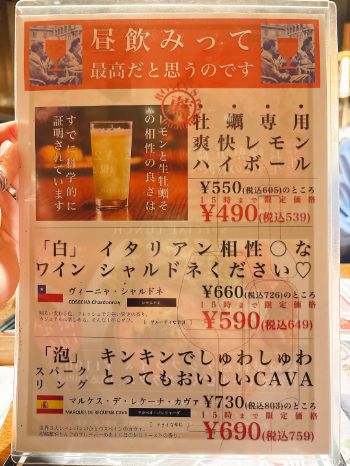 昼飲みって
最高だと思うのです
レモンと生牡蠣そ
の相性の良さは
すでに科学的に
証明されています
牡蠣専用
爽快レモン
ハイボール
¥550(税込605)のところ
15時まで限定価格
¥490(税込539)
「白」イタリアン相性○な
ワイン シャルドネください♡
ヴィーニャ・シャルドネ
COSECHA Chardonnay
¥660(税込726)のところ
15時まで限定価格
¥590(税込649)
「泡」キンキンでしゅわしゅわ
スパークリング とってもおいしいCAVA
マルケス・デ・レケーナ・カヴァ
MARQUES DE REQUENA CAVA
¥730(税込803)のところ
15時まで限定価格
¥690(税込759)